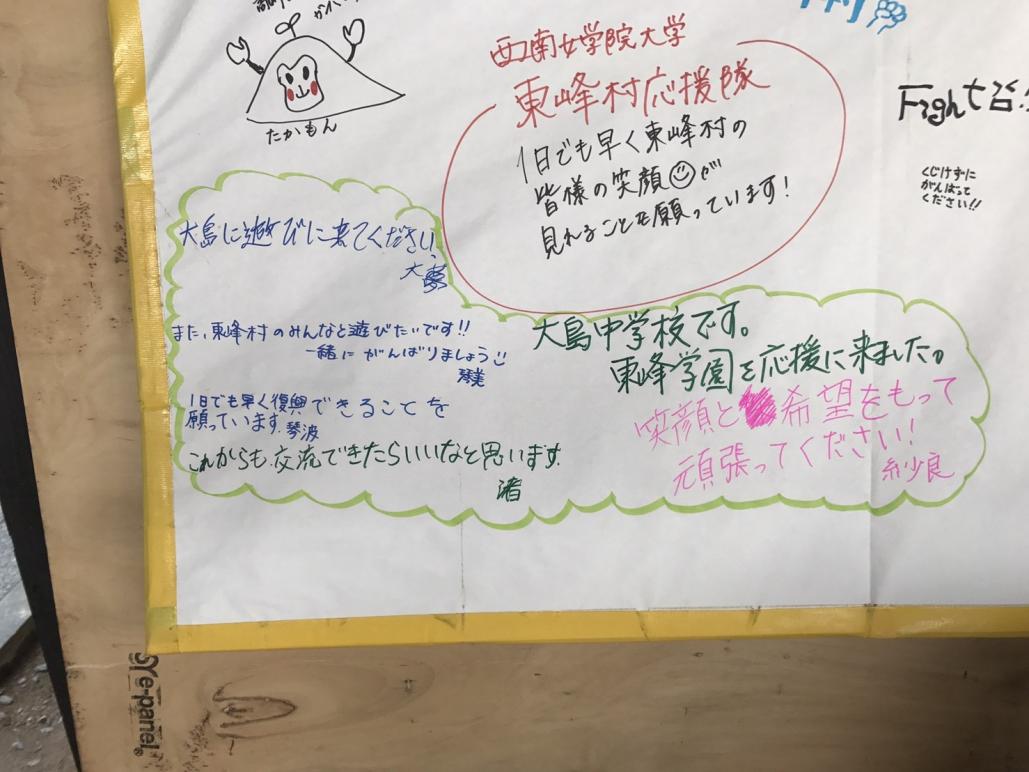 たかもん
西南女学院大学
東峰村応援隊
1日でも早く東峰村の
皆様の笑顔☺が
見れることを願っています!
Fight
くじけずに
がんばって
ください!!
大島に遊びに来てください
また、東峰村のみんなと遊びたいです!!
一緒にがんばりましょう
琴美
1日でも早く復興できることを
願っています。琴波
これからも交流できたらいいなと思います。
渚
大島中学校です。
東峰学園を応援に来ました。
笑顔と希望をもって
頑張ってください!
紗良
e-panel®